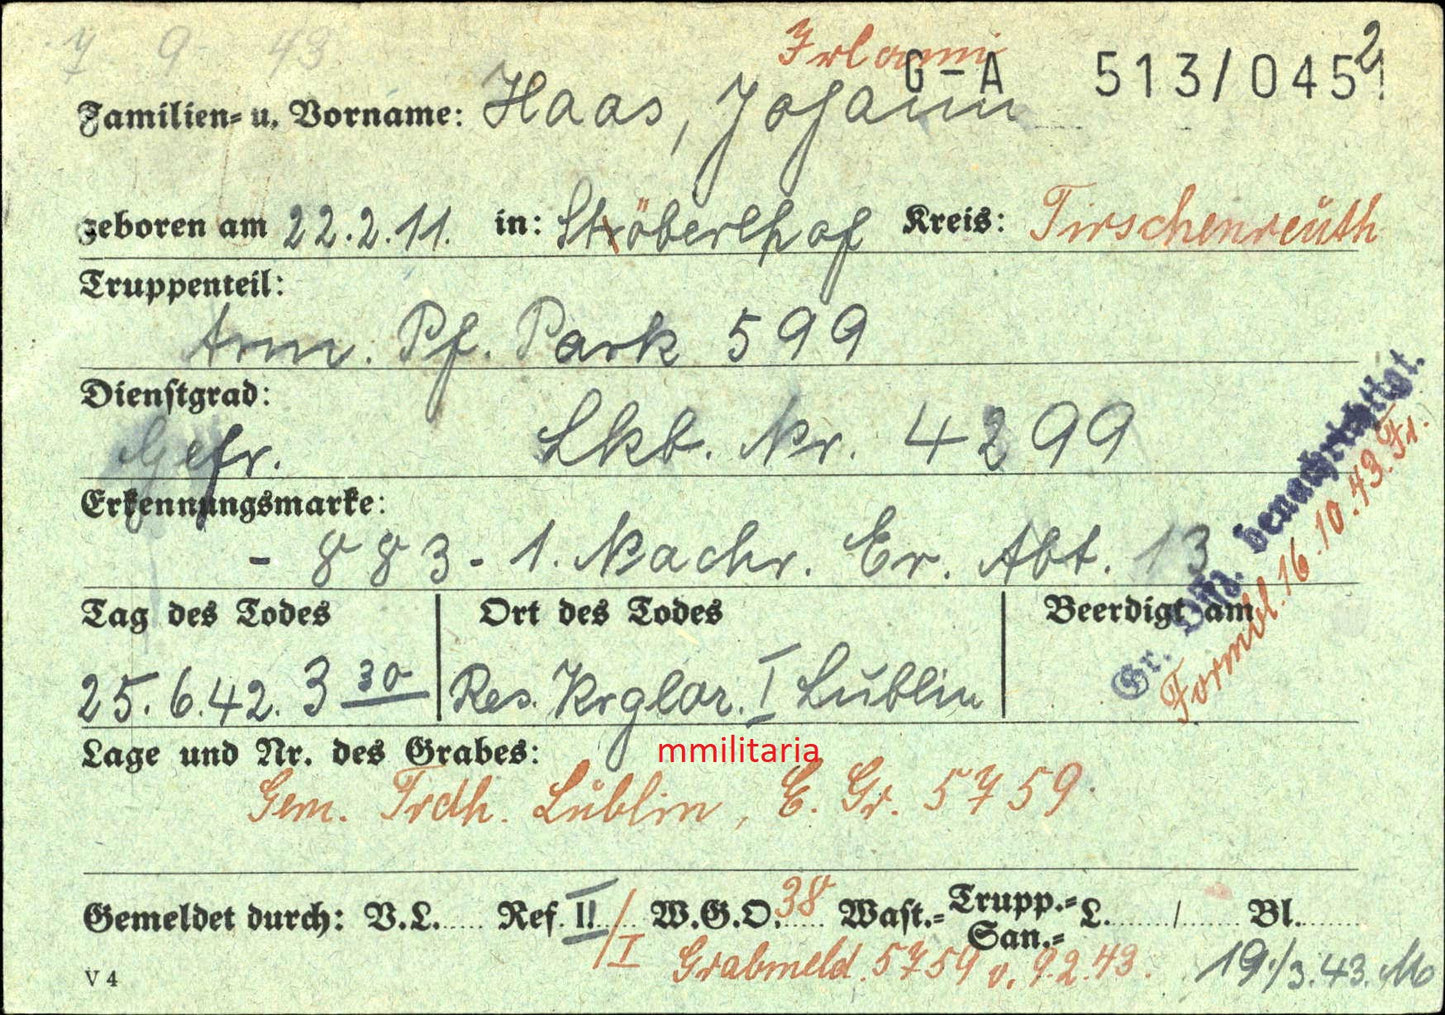 7 9 43
G-A 513/0452
Familien= u. Vorname: Haas, Johann
geboren am 22.2.11. in: Stöberlhof Kreis: Tirschenreuth
Truppenteil:
Arm. Pf. Park 599
Dienstgrad:
Gefr. Lkb. Nr. 4299
Erkennungsmarke:
- 883 - 1. Nachr. Er. Abt. 13
Tag des Todes Ort des Todes Beerdigt am
25.6.42. 3 30 Res. Krglaz. I Lublin
Gr. Offz. benachrichtigt.
Formbl. 16.10.43. Fr.
Lage und Nr. des Grabes:
mmilitaria
Gem. Frdh. Lublin, E. Gr. 5759.
Gemeldet durch: V.L..... Ref. II/I W.G.O. 38 Wast.= Trupp.=
San.= L......../........ Bl........
Grabmeld. 5759 v. 9.2.43. 19./3.43. Mo
V 4